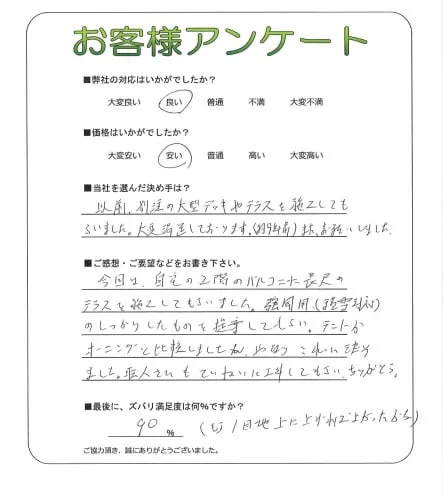 お客様アンケート
■弊社の対応はいかがでしたか?
大変良い 良い 普通 不満 大変不満
■価格はいかがでしたか?
大変安い 安い 普通 高い 大変高い
■当社を選んだ決め手は?
以前、別荘の大型デッキやテラスを施工しても
らいました。大変満足しております。(約9年前) またお願いしました
■ご感想・ご要望などをお書き下さい。
今回は、自宅の2階のバルコニーに長尺の
テラスを施工してもらいました。強風用(積雪対応)
のしっかりしたものを提案してもらい。テントか
オーニングと比較しましたが、やはり これに決め
ました。職人さんも ていねいに工事してもらい、ありがとう。
■最後に、ズバリ満足度は何%ですか?
90 %
ご協力頂き、誠にありがとうございました。